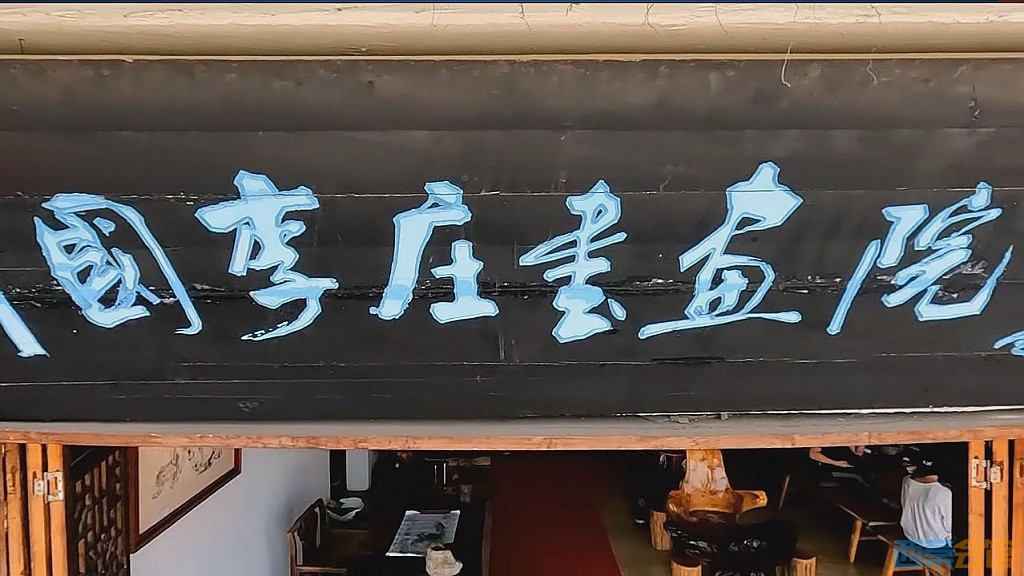 國李庄書画院